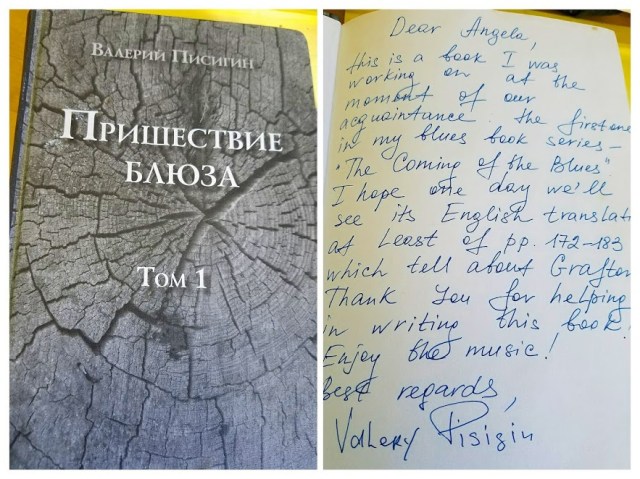 ВАЛЕРИЙ ПИСИГИН
ПРИШЕСТВИЕ
БЛЮЗА
ТОМ 1
Dear Angela,
this is a book I was
working on at the
moment of our
acquaintance the first one
in my blues book series –
"The Coming of the Blues".
I hope one day we'll
see its English translat
at Least of pp. 172–183
which tell about Grafton
Thank You for helping
in writing this book.
Enjoy the music!
Best regards,
Valery Pisigin